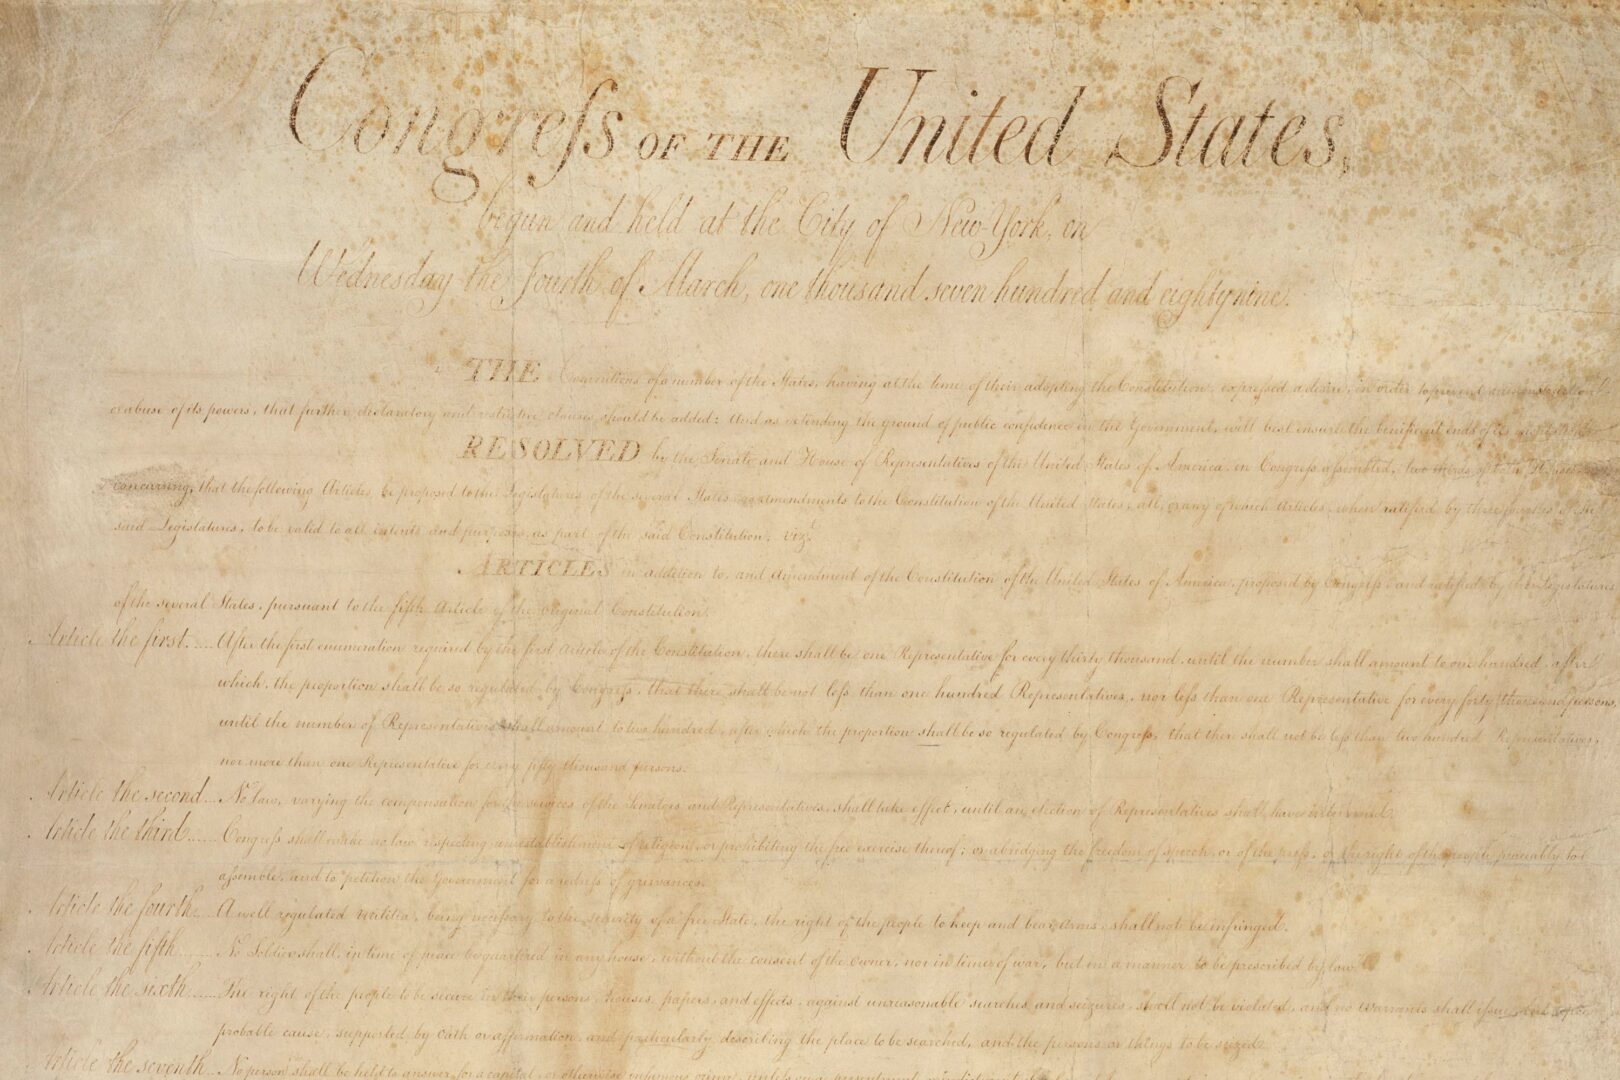 Congreſs OF THE United States,
begun and held at the City of New-York, on
Wednesday the Fourth of March, one thousand seven hundred and eighty nine.
THE Conventions of a number of the States, having at the time of their adopting the Constitution, expressed a desire, in order to prevent misconstruction
or abuse of its powers, that further declaratory and restrictive clauses should be added: And as extending the ground of public confidence in the Government, will best ensure the beneficent ends of its
RESOLVED by the Senate and House of Representatives of the United States of America, in Congreſs aſsembled, two thirds of both Houses
concurring, that the following Articles be proposed to the Legislatures of the several States, as amendments to the Constitution of the United States, all, or any of which Articles, when ratified by three fourths of the
said Legislatures, to be valid to all intents and purposes, as part of the said Constitution; viz.
ARTICLES in addition to, and Amendment of the Constitution of the United States of America, proposed by Congreſs, and ratified by the Legislatures
of the several States, pursuant to the fifth Article of the original Constitution.
Article the first..... After the first enumeration required by the first Article of the Constitution, there shall be one Representative for every thirty thousand, until the number shall amount to one hundred, after
which, the proportion shall be so regulated by Congreſs, that there shall be not leſs than one hundred Representatives, nor leſs than one Representative for every forty thousand persons,
until the number of Representatives shall amount to two hundred, after which the proportion shall be so regulated by Congreſs, that there shall not be leſs than two hundred Representatives,
nor more than one Representative for every fifty thousand persons.
Article the second... No law, varying the compensation for the services of the Senators and Representatives, shall take effect, until an election of Representatives shall have intervened.
Article the third...... Congreſs shall make no law respecting an establishment of religion, or prohibiting the free exercise thereof; or abridging the freedom of speech, or of the preſs, or the right of the people peaceably to
aſsemble, and to petition the Government for a redreſs of grievances.
Article the fourth... A well regulated militia, being necessary to the security of a free State, the right of the people to keep and bear arms, shall not be infringed.
Article the fifth....... No Soldier shall, in time of peace be quartered in any house, without the consent of the owner, nor in time of war, but in a manner to be prescribed by law.
Article the sixth...... The right of the people to be secure in their persons, houses, papers, and effects, against unreasonable searches and seizures, shall not be violated, and no Warrants shall issue, but upon
probable cause, supported by oath or affirmation, and particularly describing the place to be searched, and the persons or things to be seized.
Article the seventh... No person shall be held to answer for a capital, or otherwise infamous crime, unless on a presentment or indictment